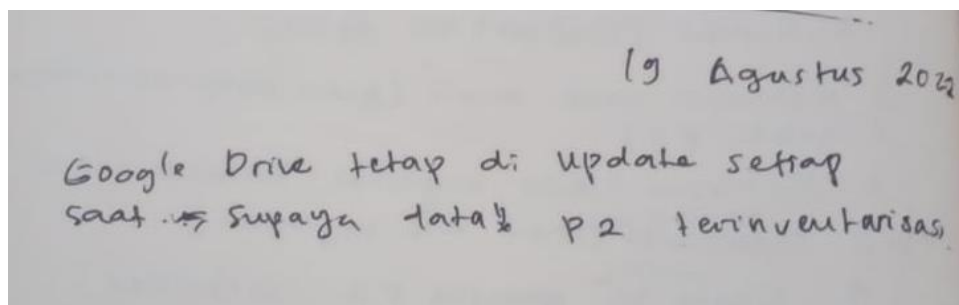 19 Agustus 2022
Google Drive tetap di update setiap
saat supaya data² P2 terinventarisasi